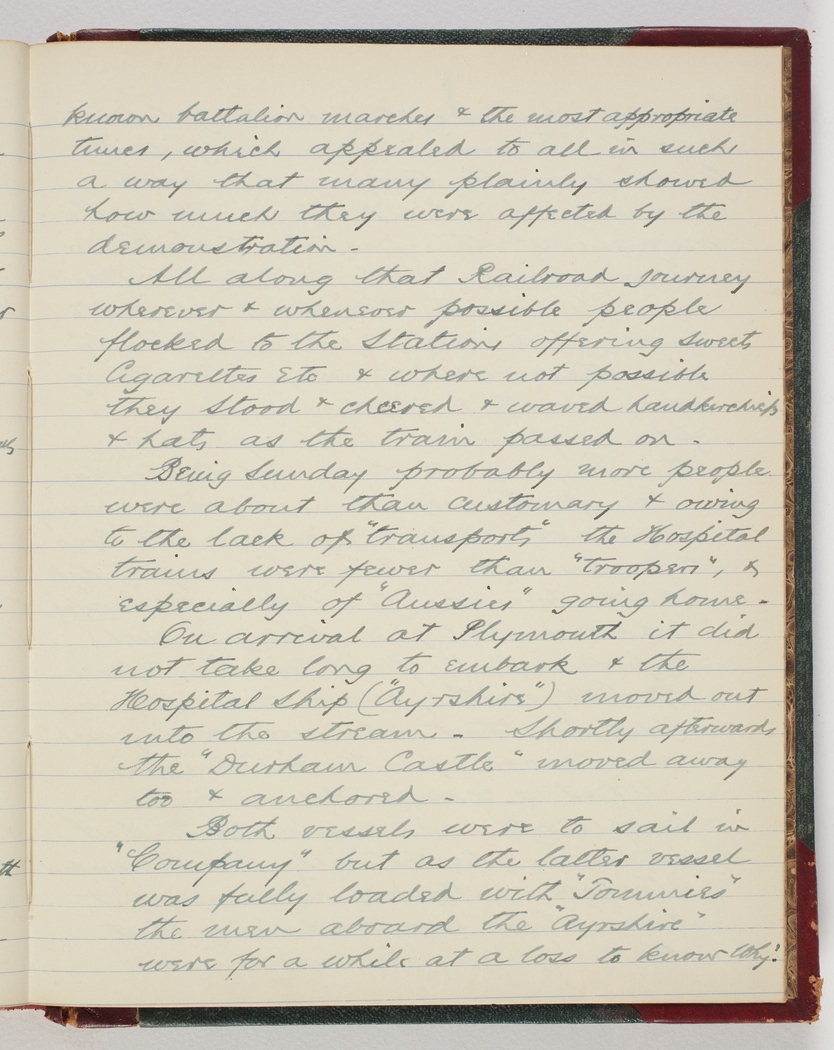 known battalion marches & the most appropriate
tunes, which appealed to all in such
a way that many plainly showed
how much they were affected by the
demonstration -
All along that Railroad journey
wherever & whenever possible people
flocked to the Stations offering sweets
Cigarettes Etc & where not possible
they stood & cheered & waved handkerchiefs
& hats as the train passed on -
Being Sunday probably more people
were about than customary & owing
to the lack of "transports" the Hospital
trains were fewer than "troopers", &
especially of "Aussies" going home -
On arrival at Plymouth it did
not take long to embark & the
Hospital Ship ("Ayrshire") moved out
into the stream - Shortly afterwards
the "Durham Castle" moved away
too & anchored -
Both vessels were to sail in
"Company" but as the latter vessel
was fully loaded with "Tommies"
the men aboard the "Ayrshire"
were for a while at a loss to know Why!